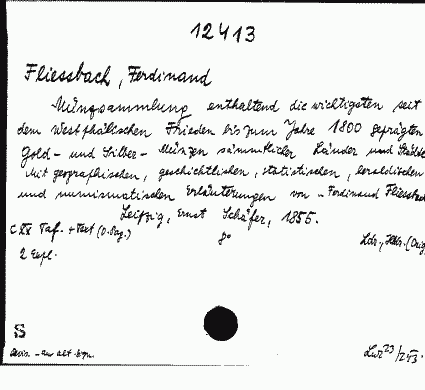 12413
Fliessbach, Ferdinand
Münzsammlung enthaltend die wichtigsten seit
dem Westphälischen Frieden bis zum Jahre 1800 geprägten
Gold- und Silber-Münzen sämmtlicher Länder und Städte
Mit geographischen, geschichtlichen, statistischen, heraldischen
und numismatischen Erläuterungen von Ferdinand Fliessbach
Leipzig, Ernst Schäfer, 1855.
Taf. + Text
8°
2 Expl.
S